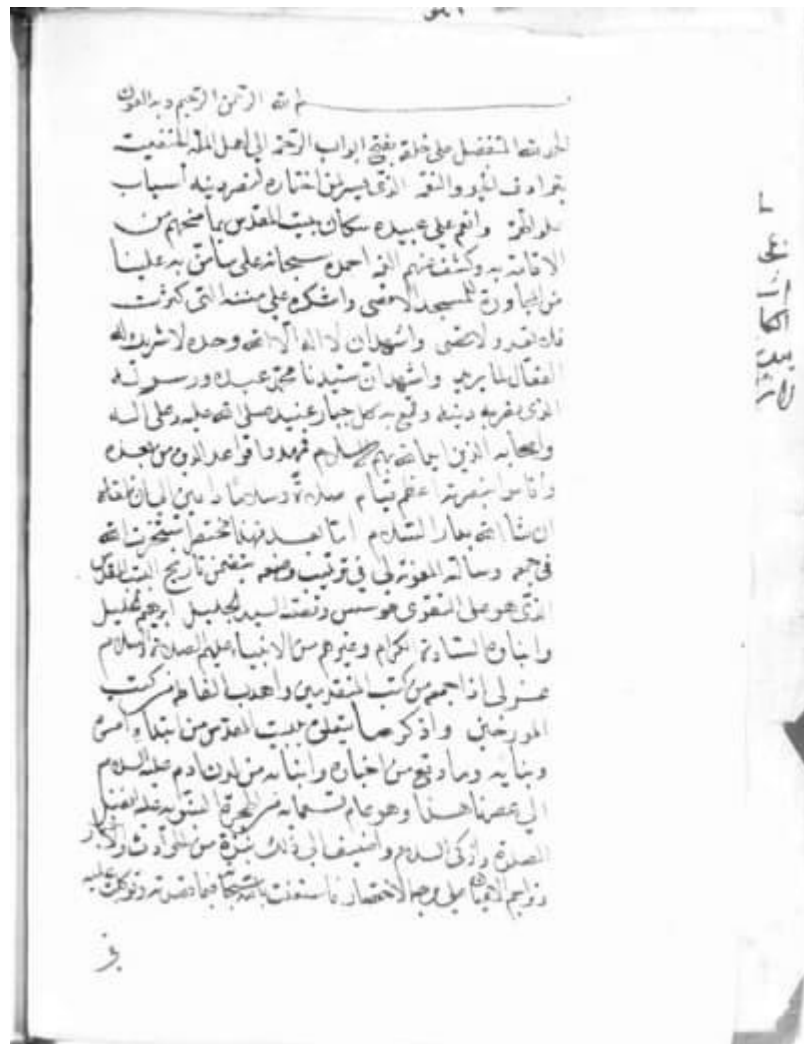 بسم الله الرحمن الرحيم وبه العون
الحمد لله المتفضل على خلقه بفتح ابواب الرحمة الى اهل الملة
بترادف الخير والنعم الذي يسر لمن اختاره لنصر دينه أسباب
وانعم على عبيده سكان بيت المقدس بما منحهم من
الاقامة به وكشف عنهم الغمه احمده سبحانه على ما من به علينا
من المجاورة للمسجد الاقصى واشكره على مننه التي كثرت
فلا تعد ولا تحصى واشهد ان لا اله الا الله وحده لا شريك له
الفعال لما يريد واشهد ان سيدنا محمد عبده ورسوله
الذي دينه وقمع به كل جبار عنيد صلى الله عليه وعلى اله
واصحابه الذين بهم الاسلام فمهدوا قواعد الدين من بعده
وقاموا بنصرته اعظم قيام صلاة وسلاما دائمين الى ان نلقاه
ان شا الله بدار السلام اما بعد فهذا مختصر استخرت الله
في جمعه وسالته المعونة لي في ترتيب وضعه يتضمن تاريخ البيت المقدس
الذي هو على التقوى موسس وقصة السيد الجليل ابرهيم الخليل
وابناؤه السادة الكرام وغيرهم من الانبياء عليهم الصلاة والسلام
عن لى اذ اجمعه من كتب المتقدمين واهذب الفاظه من كتب
المورخين واذكر ما يتعلق ببيت المقدس من ابتداء امره
وبنايه وما وقع من اخباره وانبائه من لدن ادم عليه السلام
الى عصرنا هذا وهو عام تسعمائه من الهجرة النبويه عليه افضل
الصلوة وازكى السلام واضيف الى ذلك نبذة من الحوادث والاخبار
وتراجم الاعيان على وجه الاختصار فاستعنت بالله سبحانه فيما قصدته وتوكلت عليه